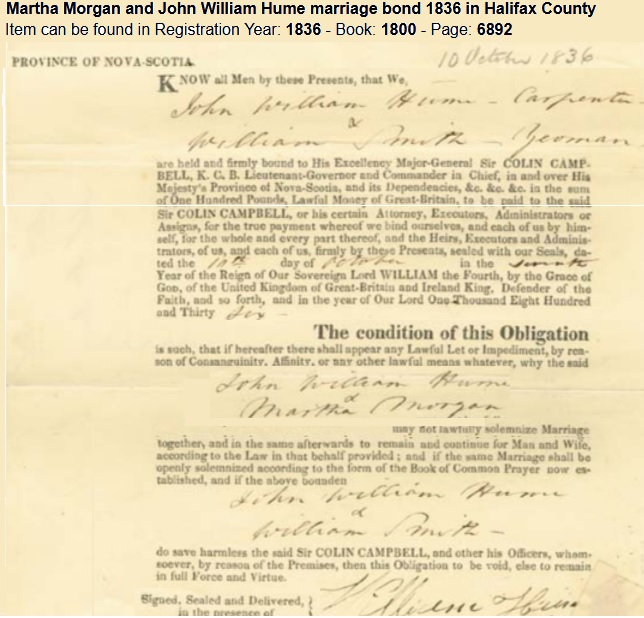 Martha Morgan and John William Hume marriage bond 1836 in Halifax County
Item can be found in Registration Year: 1836 - Book: 1800 - Page: 6892
10 October 1836
PROVINCE OF NOVA-SCOTIA.
KNOW all Men by these Presents, that We,
John William Hume - Carpenter
&
William Smith - Yeoman
are held and firmly bound to His Excellency Major-General Sir COLIN CAMP-
BELL, K. C. B. Lieutenant-Governor and Commander in Chief, in and over His
Majesty's Province of Nova-Scotia, and its Dependencies, &c. &c. &c. in the sum
of One Hundred Pounds, Lawful Money of Great-Britain, to be paid to the said
Sir COLIN CAMPBELL, or his certain Attorney, Executors, Administrators or
Assigns, for the true payment whereof we bind ourselves, and each of us by him-
self, for the whole and every part thereof, and the Heirs, Executors and Adminis-
trators, of us, and each of us, firmly by these Presents, sealed with our Seals, da-
ted the 10th day of October in the
Year of the Reign of Our Sovereign Lord WILLIAM the Fourth, by the Grace of
GOD, of the United Kingdom of Great-Britain and Ireland King, Defender of the
Faith, and so forth, and in the year of Our Lord One Thousand Eight Hundred
and Thirty Six -
The condition of this Obligation
is such, that if hereafter there shall appear any Lawful Let or Impediment, by rea-
son of Consanguinity, Affinity, or any other lawful means whatever, why the said
John William Hume
&
Martha Morgan
may not lawfully solemnize Marriage
together, and in the same afterwards to remain and continue for Man and Wife,
according to the Law in that behalf provided; and if the same Marriage shall be
openly solemnized according to the form of the Book of Common Prayer now es-
tablished, and if the above bounden
John William Hume
&
William Smith -
do save harmless the said Sir COLIN CAMPBELL, and other his Officers, whom-
soever, by reason of the Premises, then this Obligation to be void, else to remain
in full Force and Virtue.
Signed, Sealed and Delivered, }
in the presence of
William